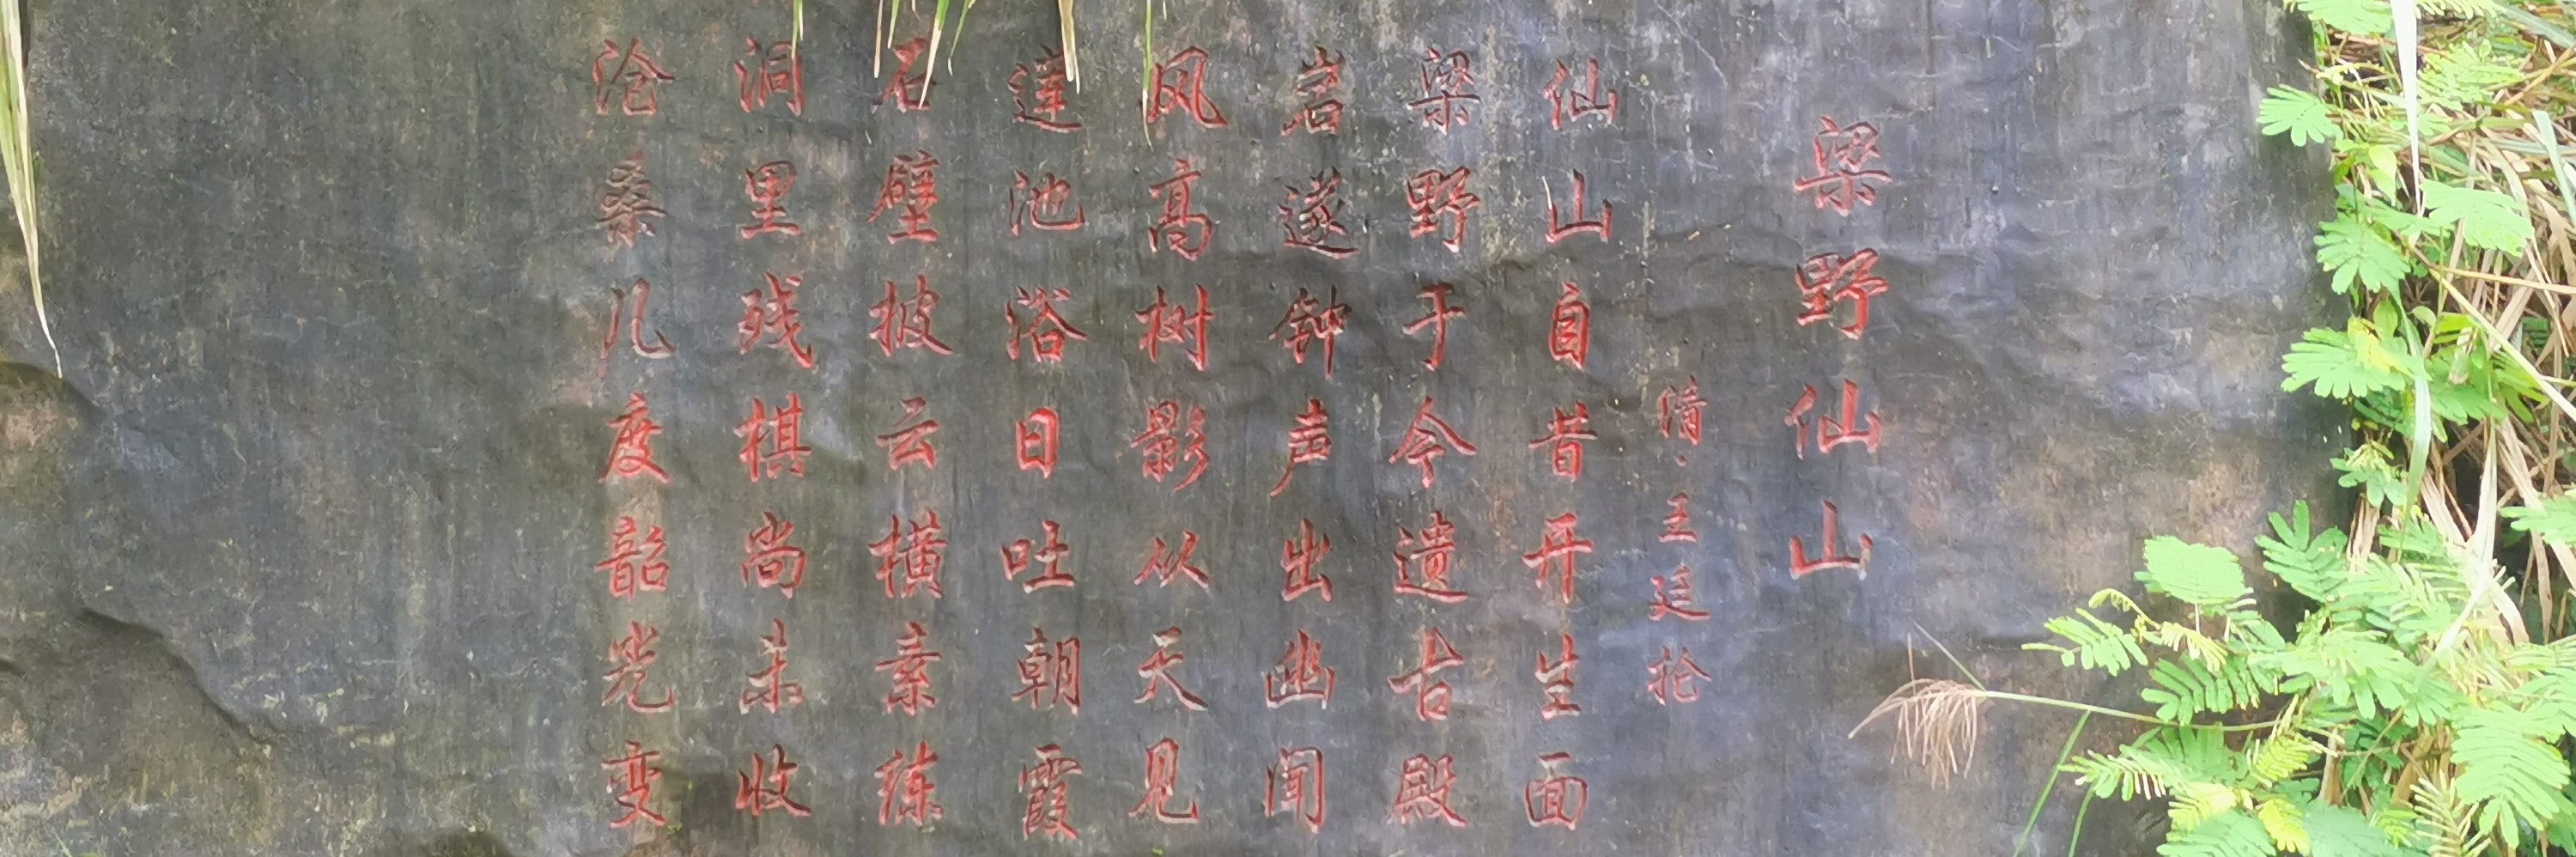 梁野仙山
清·王廷抡
仙山自昔开生面
梁野于今遗古殿
岩邃钟声出幽闻
风高树影从天见
莲池浴日吐朝霞
石壁披云横素练
洞里残棋尚未收
沧桑几度韶光变